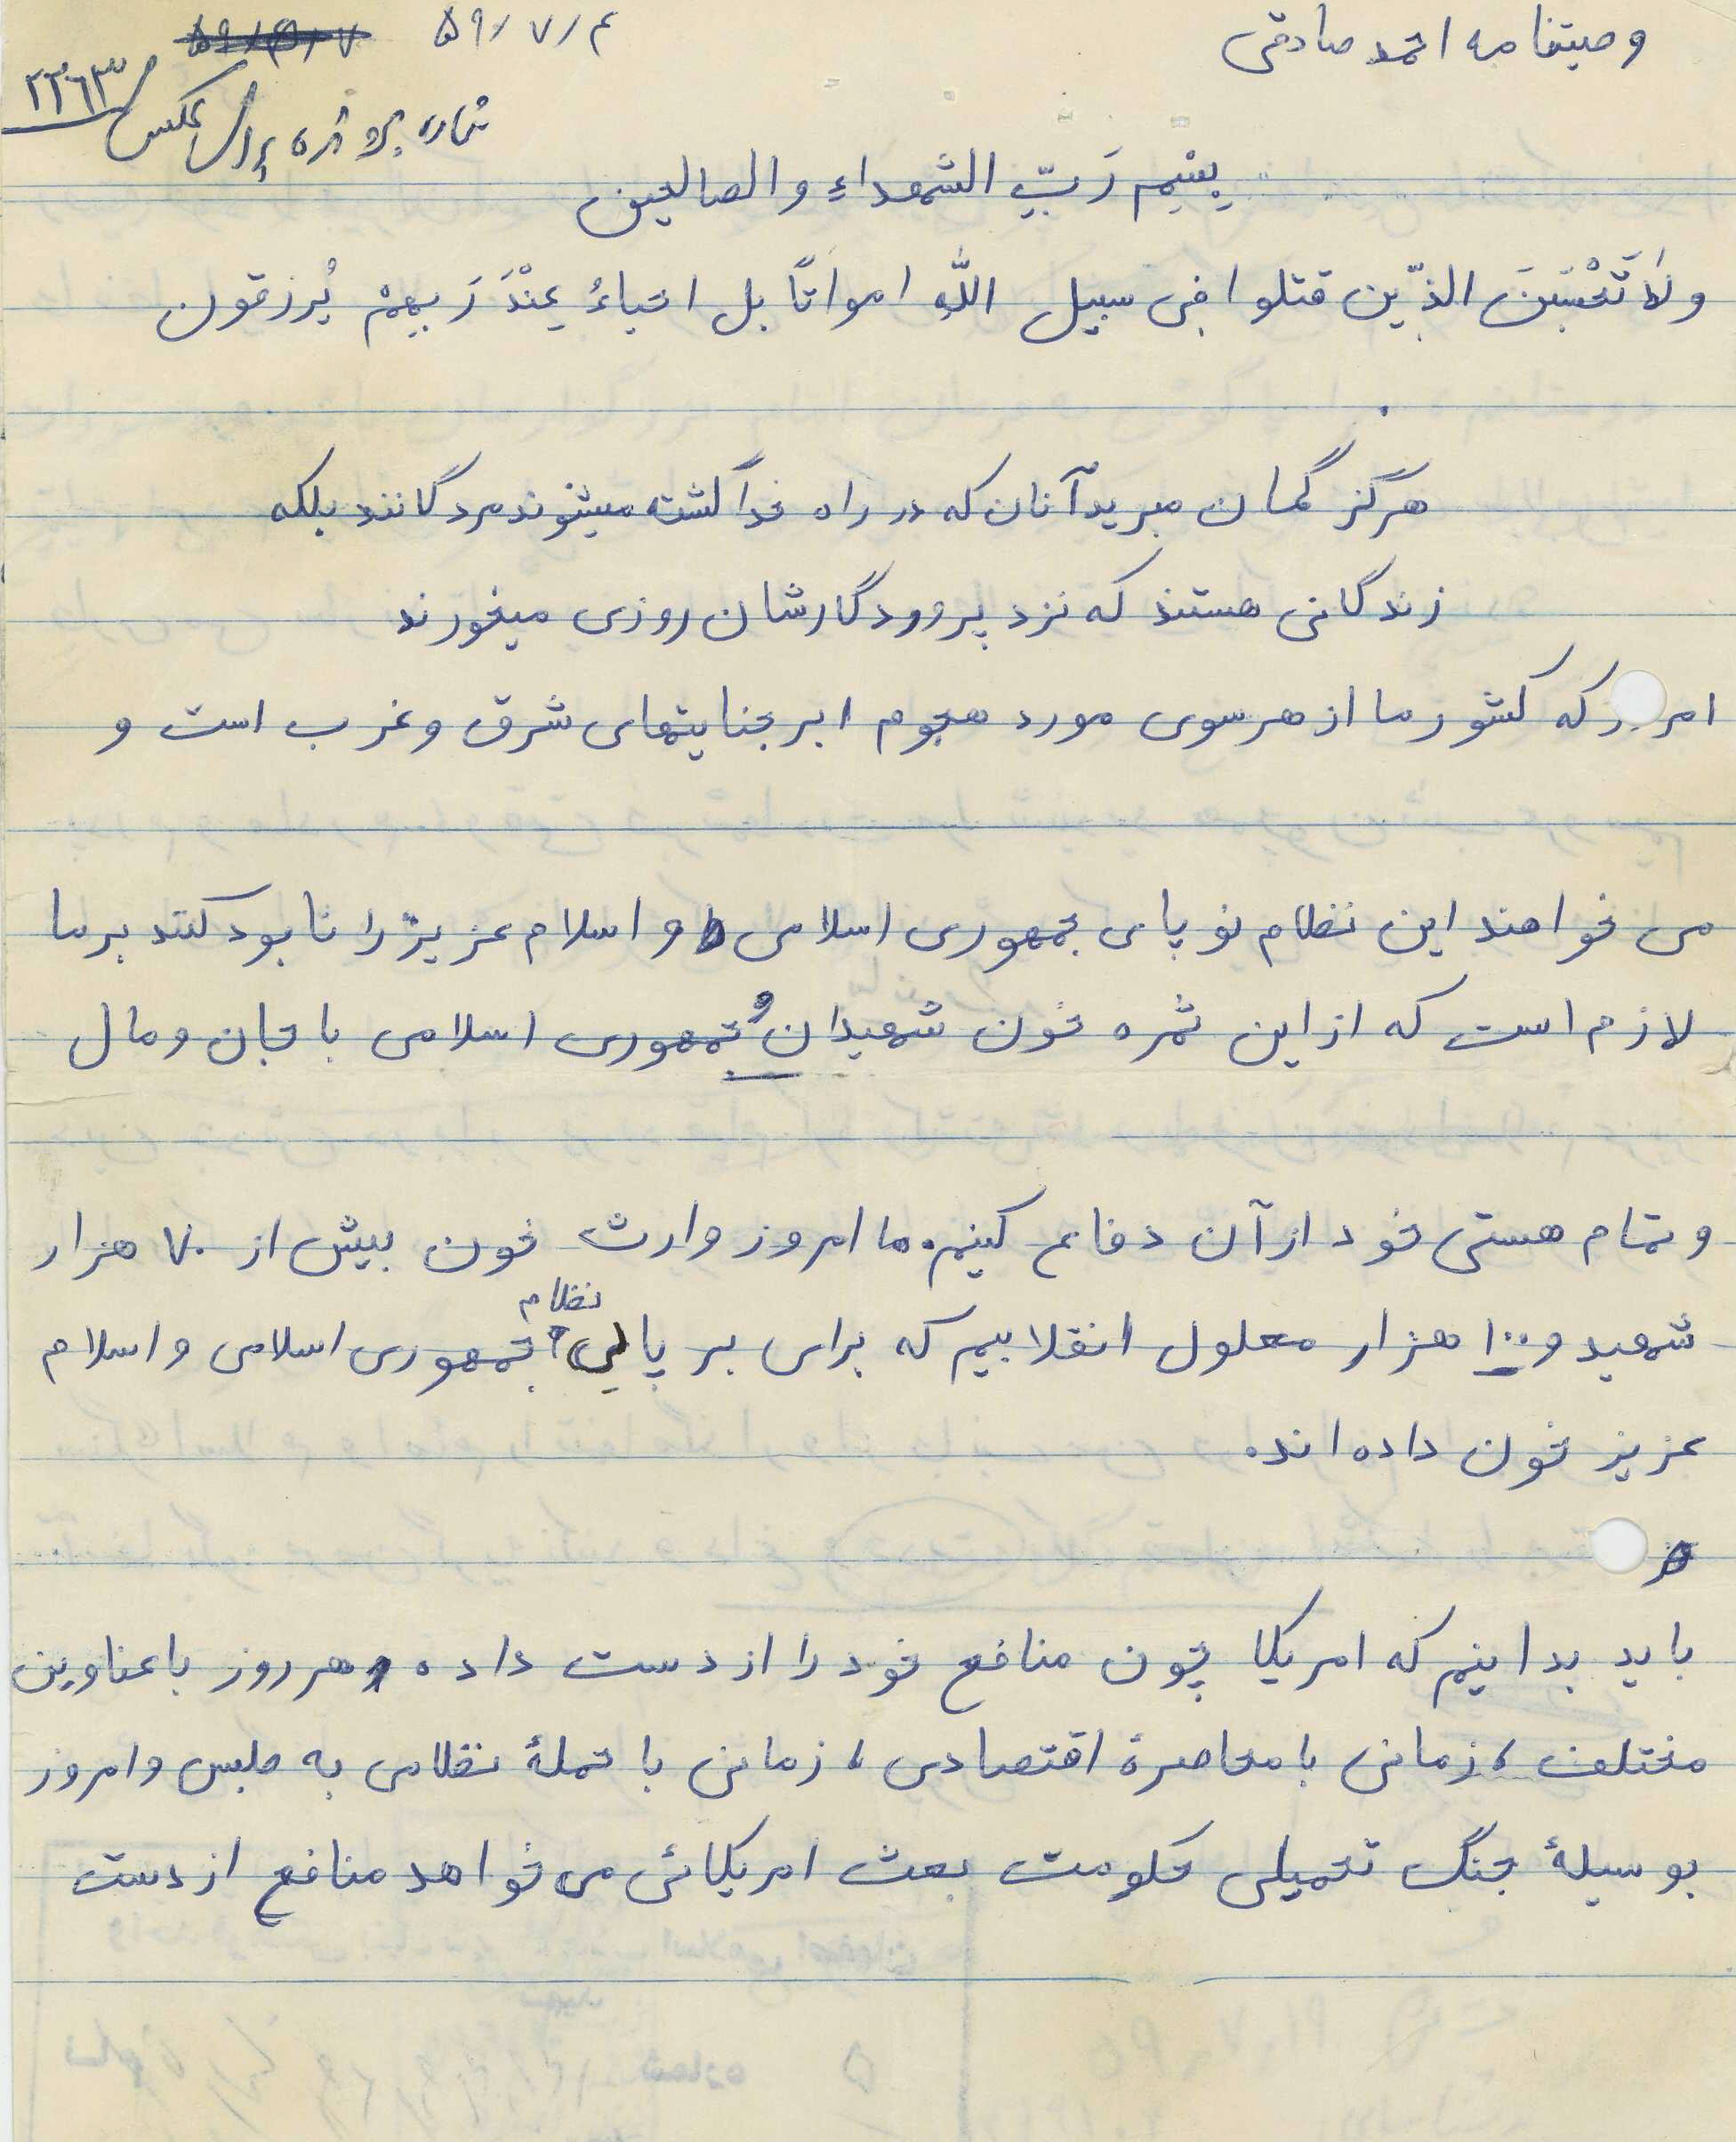 وصیتنامه احمد صادقی
۵۹/۷/۴
شماره پرونده پرسنلی عکس ۲۲۶۳
بِسْمِ رَبِّ الشهداءِ والصالحین
ولا تَحْسَبَنَ الذّین قتلوا فی سبیل اللّهِ امواتاً بل احیاءُ عِنْدَ رَبهِمْ یُرزقون
هرگز گمان مبرید آنان که در راه خدا کشته میشوند مردگانند بلکه
زندگانی هستند که نزد پروردگارشان روزی میخورند
که کشور ما از هر سوی مورد هجوم ابر جنایتهای شرق و غرب است و
می خواهند این نظام نو پای جمهوری اسلامی و اسلام عزیز را نابود کنند بر ما
لازم است که از این ثمره خون شهیدان و جمهوری اسلامی با جان و مال
و تمام هستی خود از آن دفاع کنیم. ما امروز وارث خون بیش از ۷۰ هزار
شهید و ۱۰۰ هزار معلول انقلابیم که برای بر پایی نظام جمهوری اسلامی و اسلام
عزیز خون داده اند.
باید بدانیم که امریکا چون منافع خود را از دست داده هر روز با عناوین
مختلف، زمانی با محاصرهٔ اقتصادی، زمانی با حملهٔ نظامی به طبس و امروز
بوسیلهٔ جنگ تحمیلی حکومت بعث امریکائی می خواهد منافع از دست